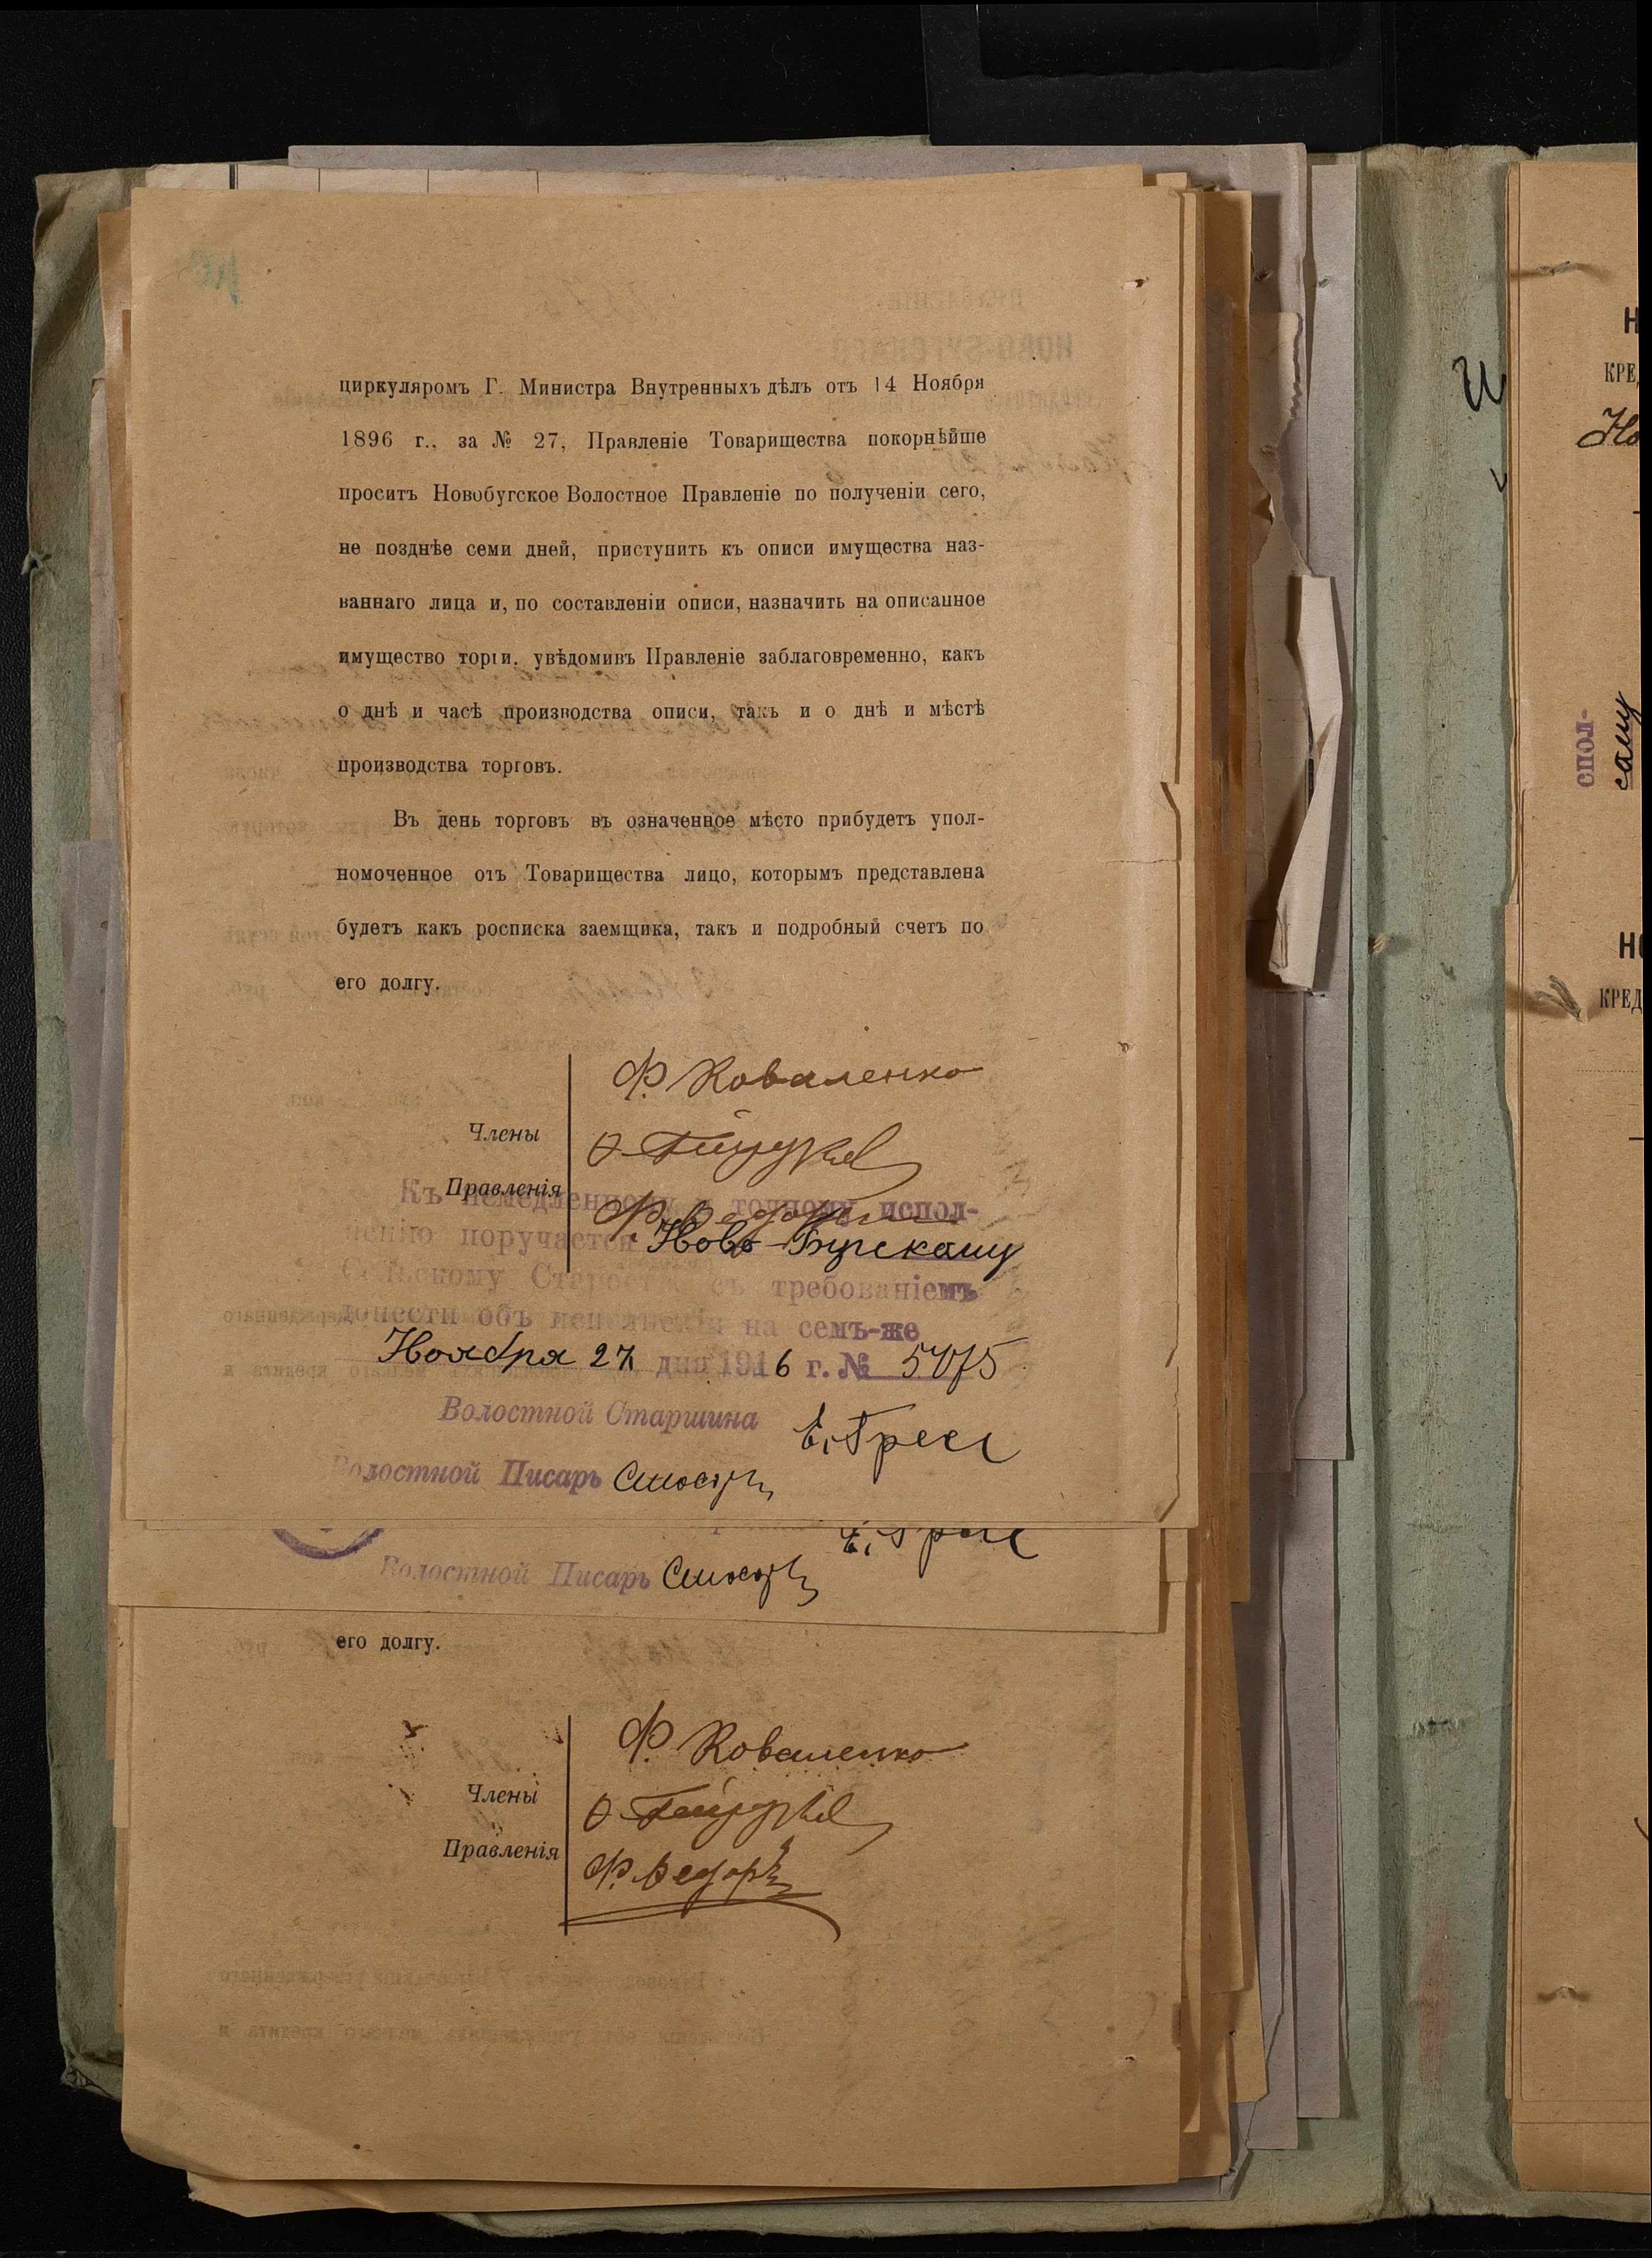 циркуляромъ Г. Министра Внутренныхъ дѣлъ отъ 14 Ноября
1896 г., за № 27, Правленіе Товарищества покорнѣйше
проситъ Новобугское Волостное Правленіе по полученіи сего,
не позднѣе семи дней, приступить къ описи имущества наз-
ваннаго лица и, по составленіи описи, назначить на описанное
имущество торги. увѣдомивъ Правленіе заблаговременно, какъ
о днѣ и часѣ производства описи, такъ и о днѣ и мѣстѣ
производства торговъ.
Въ день торговъ въ означенное мѣсто прибудетъ упол-
номоченное отъ Товарищества лицо, которымъ представлена
будетъ какъ росписка заемщика, такъ и подробный счетъ по
его долгу.
Ф. Коваленко
Члены
Правленія
Къ немедленному и точному испол-
ненію поручается Ново-Бугскому
Сельскому Старостѣ съ требованіемъ
донести объ исполненіи на семъ-же
Ноября 27 дня 1916 г. № 5075
Волостной Старшина
Волостной Писарь
Волостной Писарь
его долгу.
Ф. Коваленко
Члены
Правленія
спол-
сему
Н
КРЕ
Но
Н
КРЕД